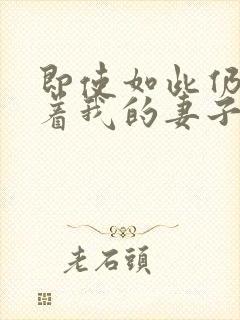 即使如此仍
着我的妻子
老石頭